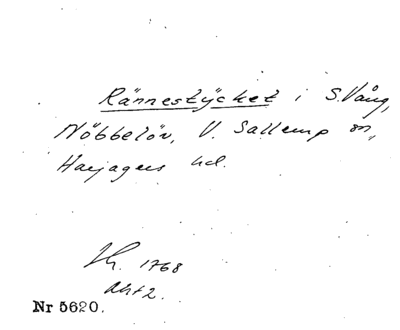 Rännestÿcket i S. Vång,
Nöbbelöv, V. Sallerup sn,
Harjagers hd.
1768
Akt 2.
Nr 5620.